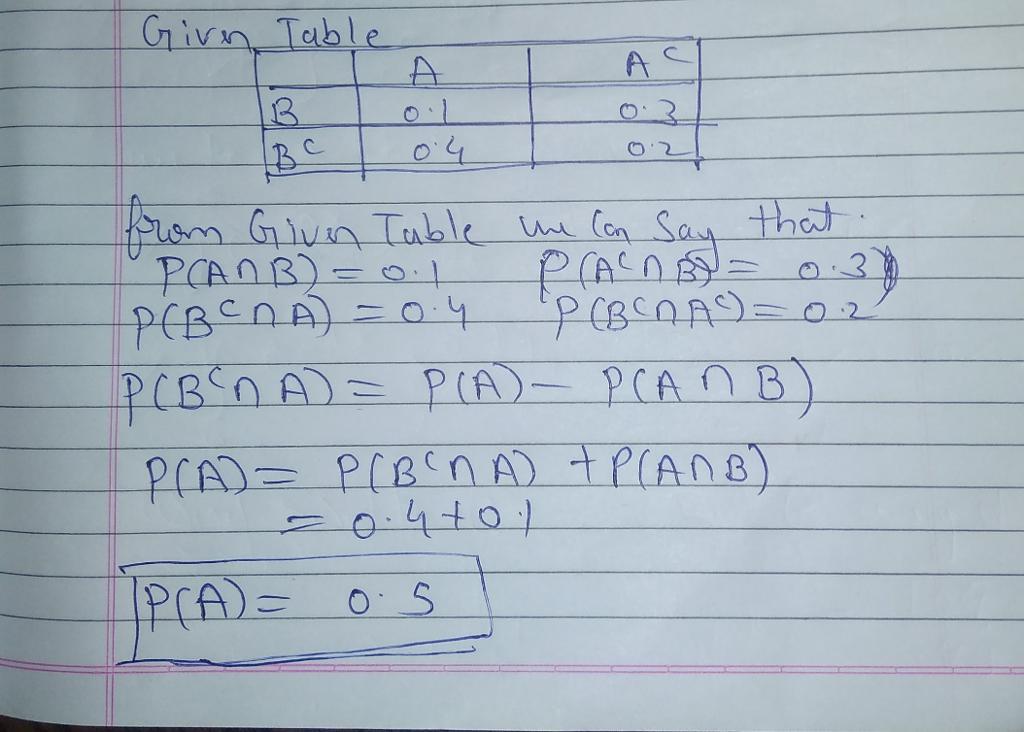 Given Table
A A^C
B 0.1 0.3
B^C 0.4 0.2
from Given Table we Can Say that.
P(A∩B) = 0.1 P(A^C∩B) = 0.3
P(B^C∩A) = 0.4 P(B^C∩A^C) = 0.2
P(B^C∩A) = P(A) - P(A∩B)
P(A) = P(B^C∩A) + P(A∩B)
= 0.4 + 0.1
P(A) = 0.5